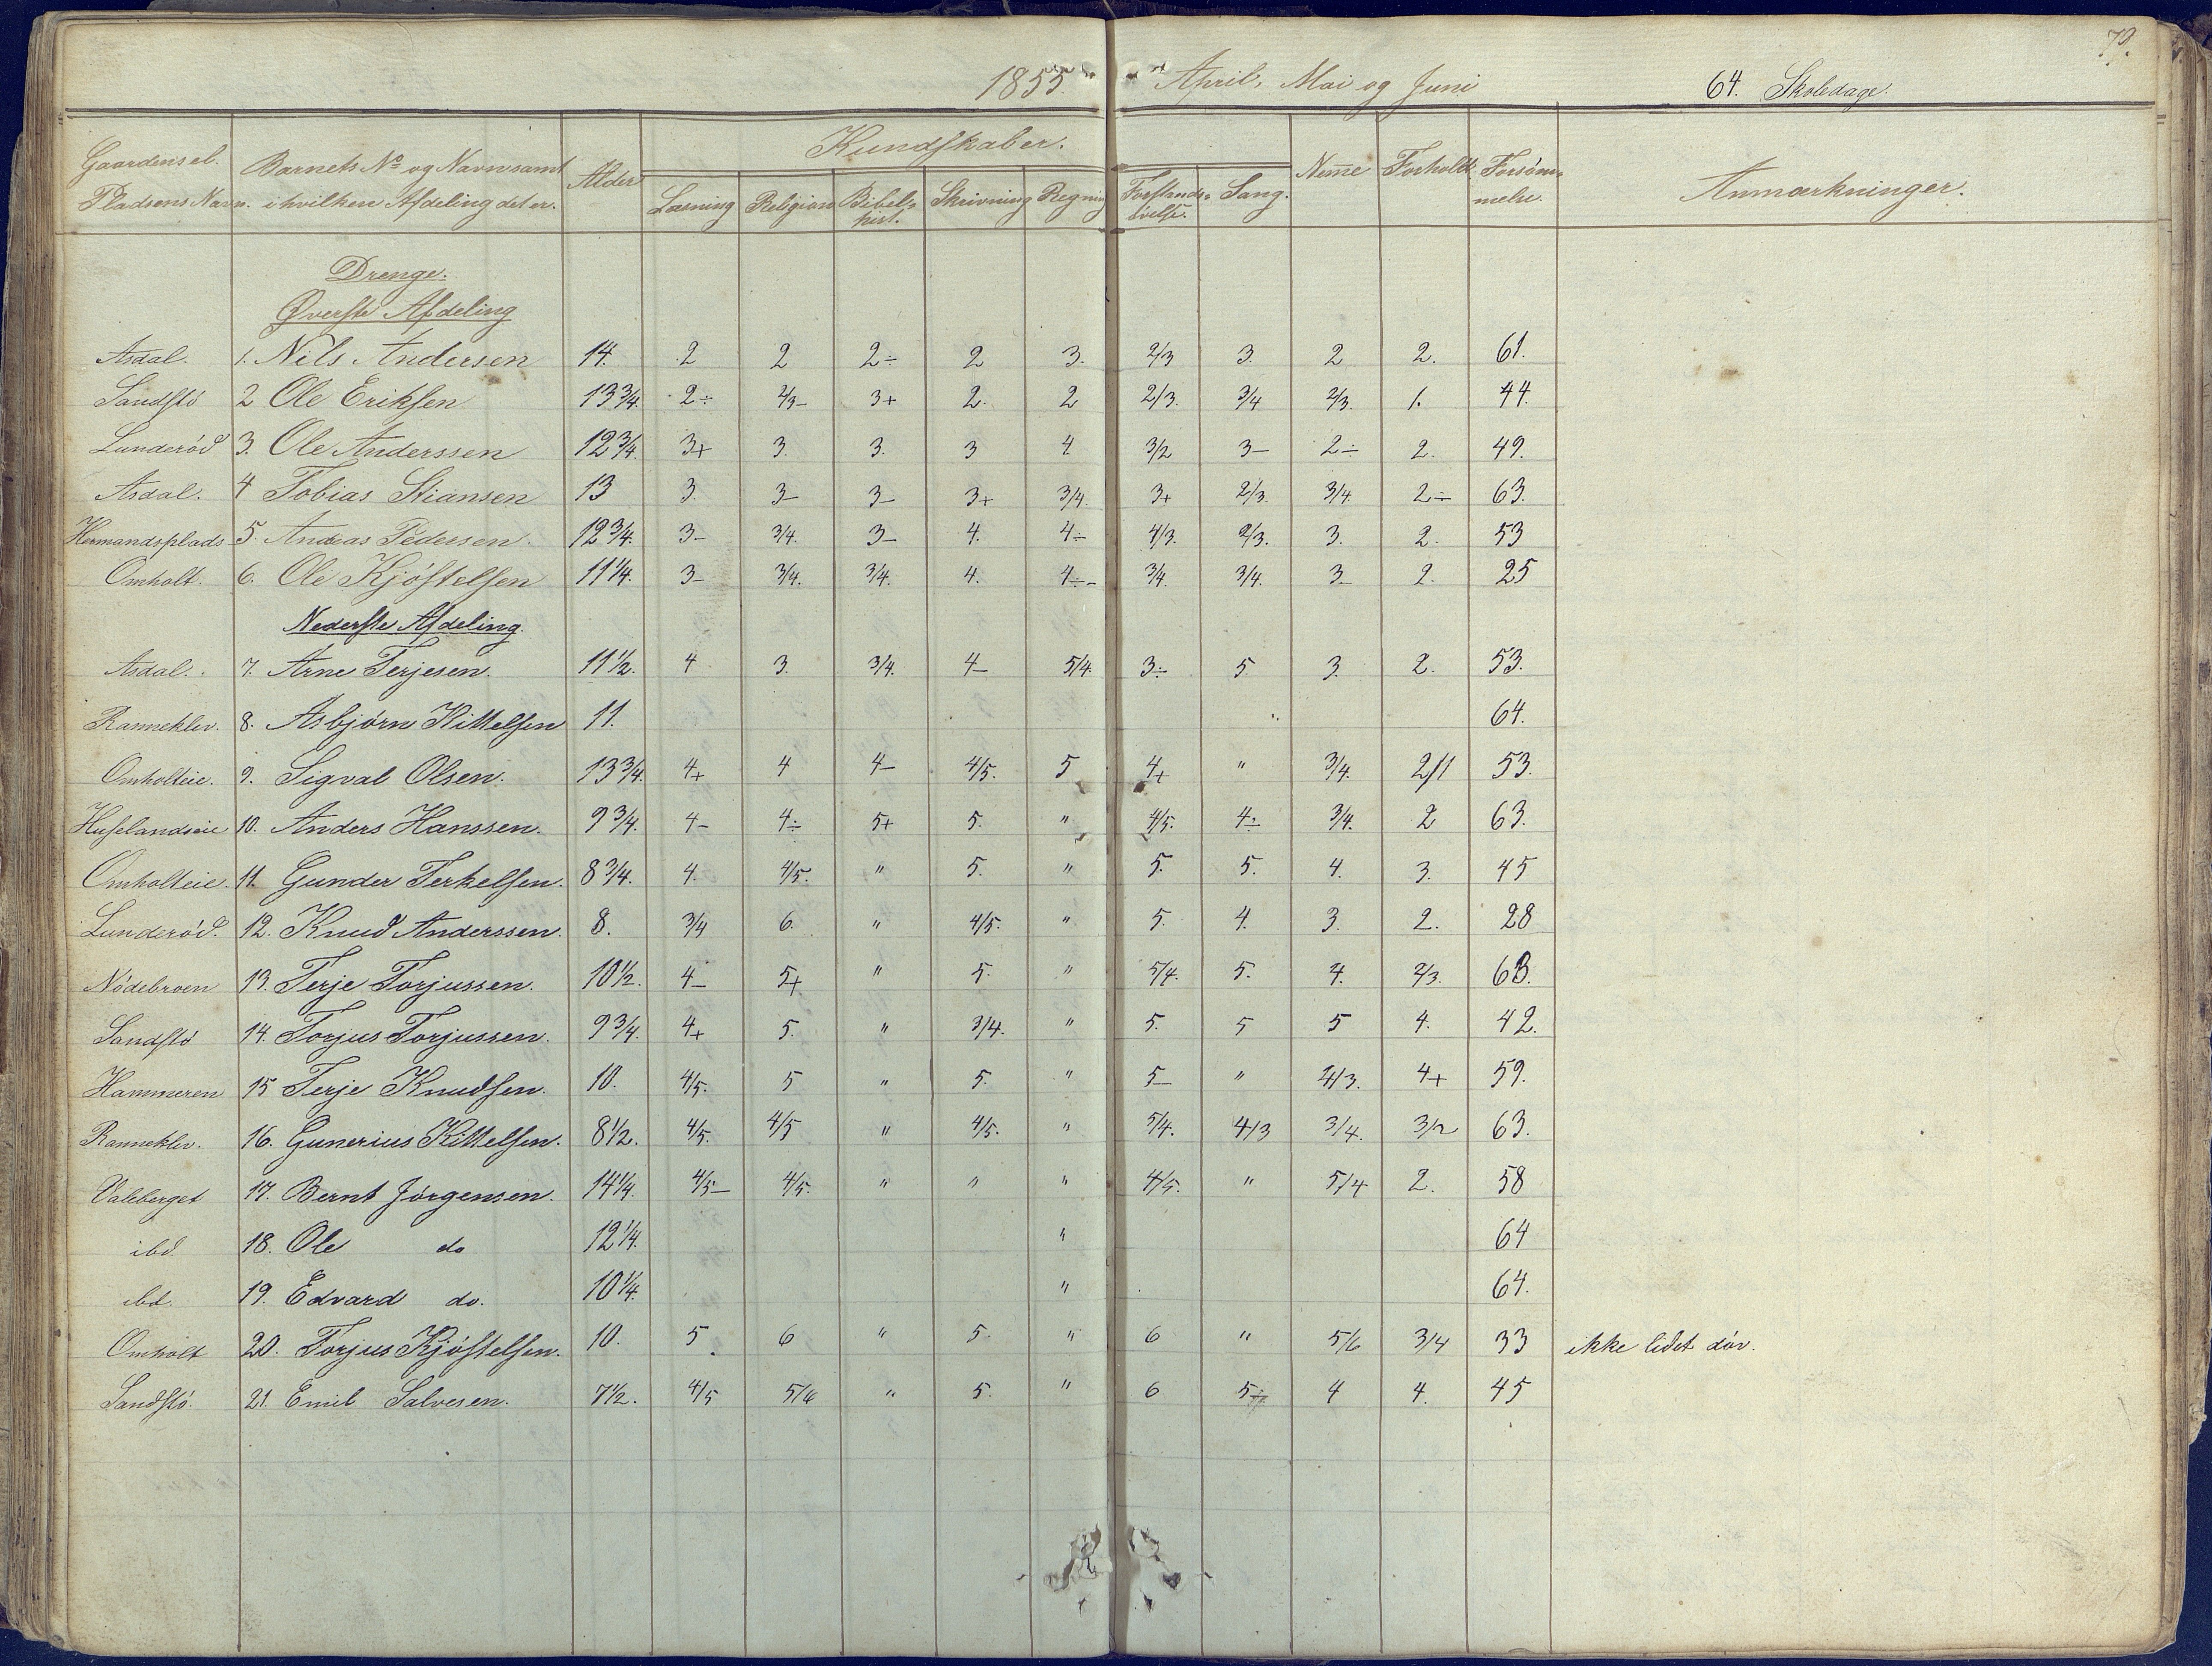 79.
1855. April, Mai og Juni 64. Skoledage.
Gaardens el. Pladsens Navn. Barnets No og Navn samt i hvilken Afdeling det er. Alder Kundskaber. Nem̄e Forhold Forsømmelse. Anmærkninger.
Læsning Religion Bibelhist. Skrivning Regning Forstandsøvelse. Sang.
Drenge.
Øverste Afdeling
Asdal. 1. Nils Andersen 14. 2 2 2÷ 2 3. 2/3 3. 2 2. 61.
Sandstö 2 Ole Eriksen 13 3/4. 2÷ 2/3- 3+ 2. 2 2/3. 3/4 2/3. 1. 44.
Lunderöd 3. Ole Anderssen 12 3/4. 3+ 3. 3. 3 4 3/2 3- 2÷ 2. 49.
Asdal. 4 Tobias Stiansen 13 3. 3- 3- 3+ 3/4. 3+ 2/3. 3/4 2÷ 63.
Hermandsplads 5. Andeas Pedersen. 12 3/4. 3- 3/4. 3- 4. 4÷ 4/3. 2/3. 3. 2. 53
Omholt. 6. Ole Kjöstelsen 11 1/4. 3- 3/4. 3/4. 4. 4÷- 3/4. 3/4. 3- 2. 25
Nederste Afdeling.
Asdal. 7. Arne Terjesen. 11 1/2. 4 3. 3/4. 4- 5/4 3÷ 5. 3. 2. 53.
Ranneklev. 8. Asbjörn Kittelsen 11. " 64.
Omholteie. 9. Sigval Olsen. 13 3/4. 4+ 4 4- 4/5. 5 4+ " 3/4. 2/1 53.
Huselandseie 10. Anders Hanssen. 9 3/4. 4- 4÷ 5+ 5. " 4/5. 4÷ 3/4. 2 63.
Omholteie. 11. Gunder Terkelsen. 8 3/4. 4. 4/5. " 5. " 5. 5. 4. 3. 45
Lunderöd. 12. Knud Anderssen. 8. 3/4 6. " 4/5. " 5. 4. 3. 2. 28
Nödebroen 13. Terje Torjussen. 10 1/2. 4- 5+ " 5. " 5/4. 5. 4. 2/3. 63.
Sandstö 14. Torjus Torjussen. 9 3/4. 4+ 5. " 3/4. " 5. 5 5 4. 42.
Hammeren 15 Terje Knudsen. 10. 4/5. 5 " 5. " 5- " 4/3. 4+ 59.
Ranneklev. 16. Gunerius Kittelsen. 8 1/2. 4/5. 4/5 " 4/5. " 5/4. 4/3 3/4. 3/2 63.
Valeberget 17. Bernt Jörgensen. 14 1/4. 4/5- 4/5. " " " 4/5. " 5/4 2. 58
ibd. 18. Ole do 12 1/4. " 64
ibd. 19. Edvard do. 10 1/4. " 64.
Omholt 20. Torjus Kjöstelsen. 10. 5 6 " 5. " 6 " 5/6 3/4 33 ikke lidet döv.
Sandstö. 21. Emil Salvesen. 7 1/2. 4/5 5/6 " 5. " 6 5÷ 4 4. 45